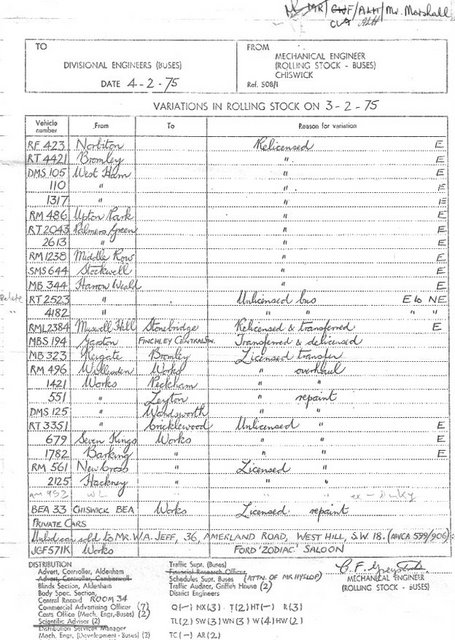 AR/GWF/ALH/Mr. Marshall
CLA ALH
TO
DIVISIONAL ENGINEERS (BUSES)
DATE 4-2-75
FROM
MECHANICAL ENGINEER
(ROLLING STOCK - BUSES)
CHISWICK
Ref. 508/1
VARIATIONS IN ROLLING STOCK ON 3-2-75
Vehicle number From To Reason for variation
RF 423 Norbiton Relicensed E
RT 4421 Bromley " E
DMS 105 West Ham " E
110 " " E
1317 " " E
RM 486 Upton Park " E
RT 2043 Palmers Green " E
2613 " " E
RM 1238 Middle Row " E
SMS 644 Stockwell " E
MB 344 Harrow Weald " E
RT 2523 " Unlicensed bus E to NE
4182 " " " " "
RML 2384 Muswell Hill Stonebridge Relicensed & transferred E
MBS 194 FINCHLEY Transferred & delicensed
MB 323 Reigate Bromley Licensed transfer
RM 496 Willesden Works " overhaul
1421 Works Peckham " "
551 " Leyton " repaint
DMS 125 " Wandsworth " "
RT 3351 " Cricklewood Unlicensed " E
679 Seven Kings Works " " E
1782 Barking " " " E
RM 561 New Cross " Licensed "
2125 Hackney " " "
952 WL
BEA 33 CHISWICK BEA Works Licensed repaint
PRIVATE CARS
sold to MR. W.A. JEFF, 36, AMERLAND ROAD, WEST HILL, S.W.18.
JGF 571K Works FORD 'ZODIAC' SALOON
DISTRIBUTION
Advert. Controller, Aldenham
Advert. Controller, Camberwell
Blinds Section, Aldenham
Body Spec. Section,
Central Record ROOM 34
Commercial Advertising Officer (7)
Costs (Mech. Eng.) Officer (2)
Scientific Adviser (2)
Distribution Services Manager
Mech. Engr. (Development - Buses) (2)
Traffic Supt. (Buses)
Financial Research Officer
Schedules Supt. Buses (ATTN. OF MR HYSLOP)
Traffic Auditor, Griffith House (2)
District Secretary
Q(-) NX(3) T(2) HT(-) R(3)
TL(2) SW(3) WN(3) W(4) HW(2)
TC(-) AR(2)
MECHANICAL ENGINEER
(ROLLING STOCK - BUSES)